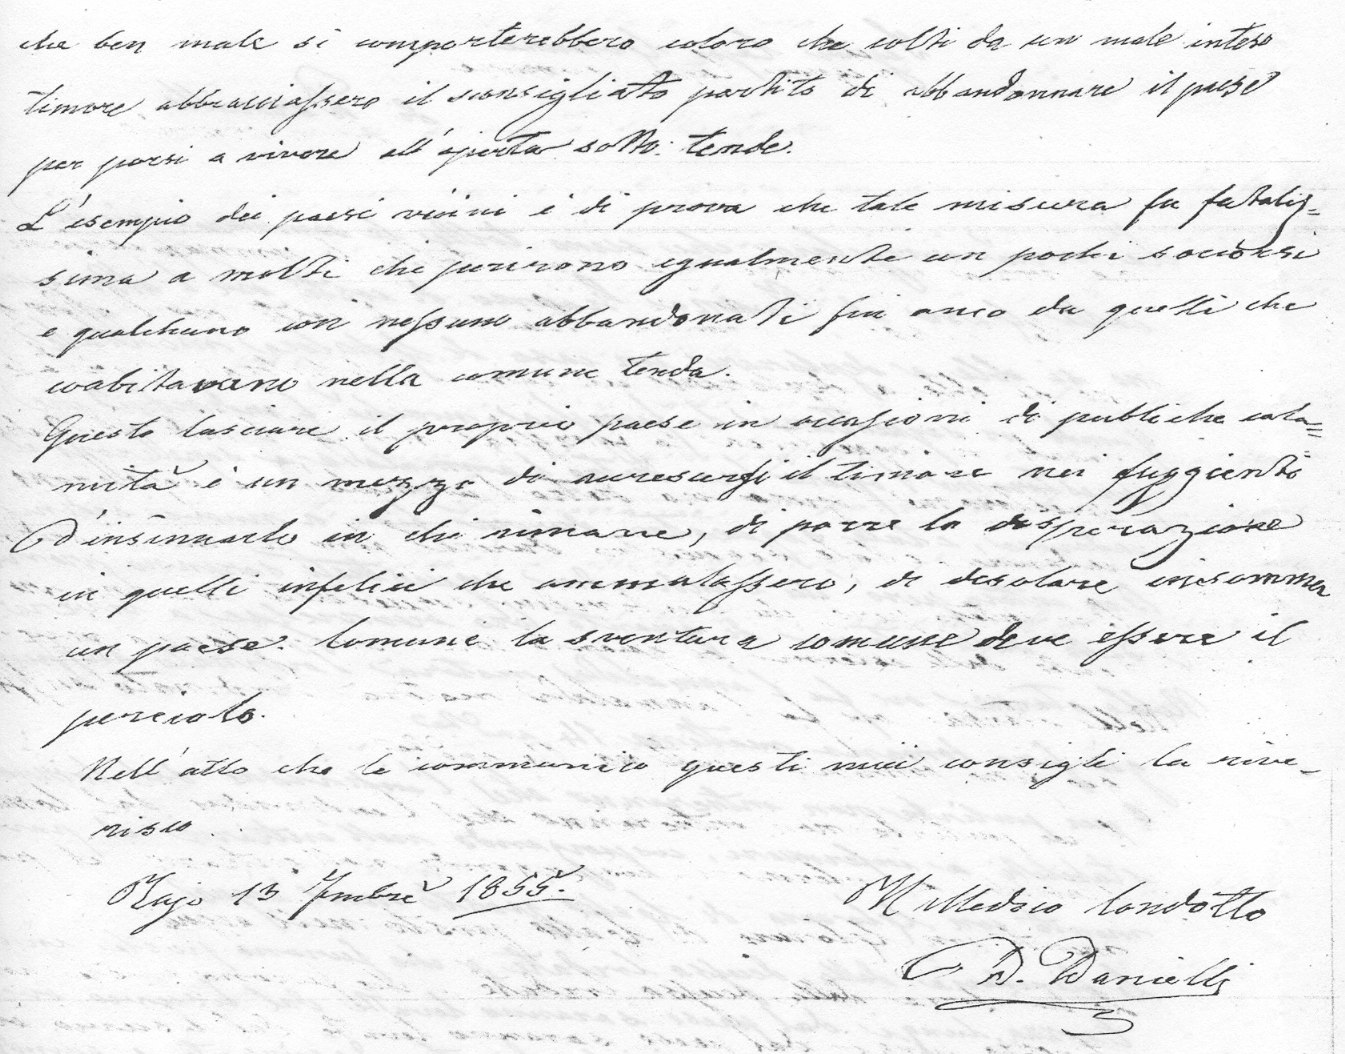 che ben male si comporterebbero coloro che colti da un male inteso
timore abbracciassero il sconsigliatto partito di abbandonnare il paese
per porsi a vivere all'aperta sotto tende.
L'esempio dei paesi vicini è di prova che tale misura fu fatalis=
sima a molti che perirono egualmente con pochi soccorsi
e qualcheuno con nessuno abbandonati fin anco da quelli che
coabitavano nella comune tenda.
Questo lasciare il proprio paese in occasioni di publiche cala=
mità è un mezzo di il timore nei fuggienti
d'insinuarlo in chi rimane, di porre la desperazione
in quelli infelici che ammalassero, di desolare insomma
un paese. Comune la sventura comune deve essere il
pericolo.
Nell'atto che le communico questi miei consigli la rive-
risco.
13 7mbre 1855.
Il Medico Condotto
D. Danielli